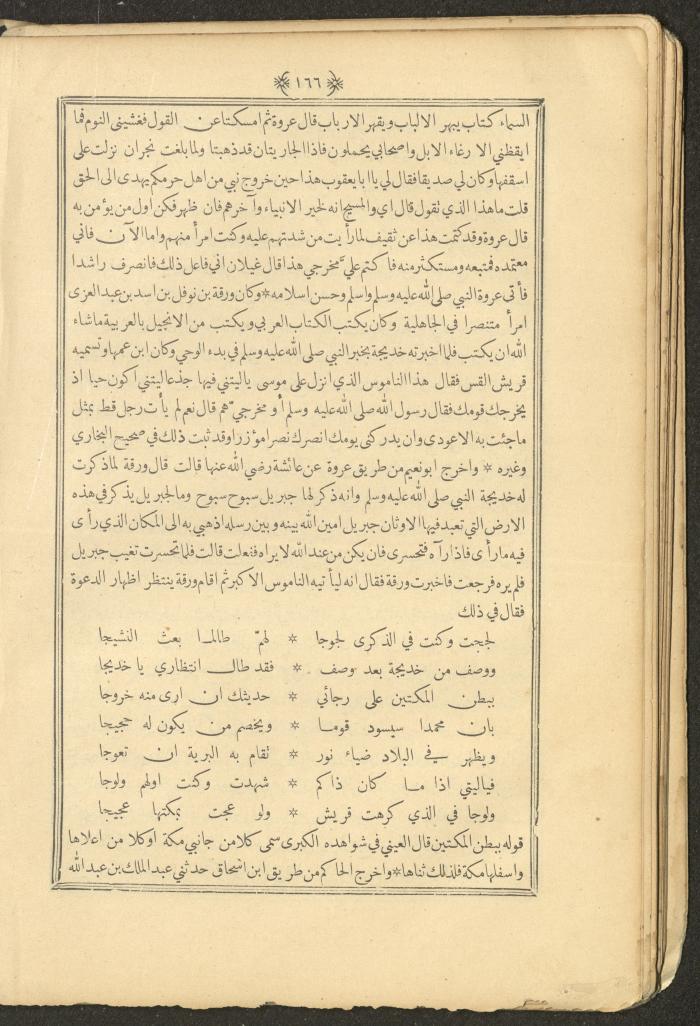 ١٦٦
السماء كتاب يبهر الالباب ويقهر الارباب قال عروة ثم امسكتا عن القول فغشيني النوم فما
ايقظني الا رغاء الابل واصحابي يحملون فاذا الجاريتان قد ذهبتا ولما بلغت نجران نزلت على
اسقفها وكان لي صديقا فقال لي يا ابا يعقوب هذا حين خروج نبي من اهل حرمكم يهدى الى الحق
قلت ما هذا الذي تقول قال اي والمسيح انه لخير الانبياء وآخرهم فان ظهر فكن اول من يؤمن به
قال عروة وقد كتمت هذا عن ثقيف لما رأيت من شدتهم عليه وكنت امرأ منهم واما الآن فاني
معتمده فمتبعه ومستكثر منه فاكتم عليّ مخرجي هذا قال غيلان اني فاعل ذلك فانصرف راشدا
فأتى عروة النبي صلى الله عليه وسلم واسلم وحسن اسلامه * وكان ورقة بن نوفل بن اسد بن عبد العزى
امرأ متنصرا في الجاهلية وكان يكتب الكتاب العربي ويكتب من الانجيل بالعربية ماشاء
الله ان يكتب فلما اخبرته خديجة بخبر النبي صلى الله عليه وسلم في بدء الوحي وكان ابن عمها وتسميه
قريش القس فقال هذا الناموس الذي انزل على موسى ياليتني فيها جذعا ليتني اكون حيا اذ
يخرجك قومك فقال رسول الله صلى الله عليه وسلم أو مخرجيّ هم قال نعم لم يأت رجل قط بمثل
ماجئت به الا عودى وان يدركني يومك انصرك نصرا مؤزرا وقد ثبت ذلك في صحيح البخاري
وغيره * واخرج ابو نعيم من طريق عروة عن عائشة رضي الله عنها قالت قال ورقة لما ذكرت
له خديجة النبي صلى الله عليه وسلم وانه ذكر لها جبريل سبوح سبوح وما لجبريل يذكر في هذه
الارض التي تعبد فيها الاوثان جبريل امين الله بينه وبين رسله اذهبي به الى المكان الذي رأى
فيه ما رأى فاذا رآه فتحسرى فان يكن من عند الله لا يراه ففعلت قالت فلما تحسرت تغيب جبريل
فلم يره فرجعت فاخبرت ورقة فقال انه ليأتيه الناموس الاكبر ثم اقام ورقة ينتظر اظهار الدعوة
فقال في ذلك
لججت وكنت في الذكرى لجوجا * لهمّ طالما بعث النشيجا
ووصف من خديجة بعد وصف * فقد طال انتظاري يا خديجا
ببطن المكتين على رجائي * حديثك ان ارى منه خروجا
بان محمدا سيسود قوما * ويخصم من يكون له حجيجا
ويظهر في البلاد ضياء نور * تقام به البرية ان تعوجا
فياليتي اذا ما كان ذاكم * شهدت وكنت اولهم ولوجا
ولوجا في الذي كرهت قريش * ولو عجت بمكتها عجيجا
قوله ببطن المكتين قال العيني في شواهده الكبرى سمى كلا من جانبي مكة او كلا من اعلاها
واسفلها مكة فلذلك ثناها * واخرج الحاكم من طريق ابن اسحاق حدثني عبد الملك بن عبد الله